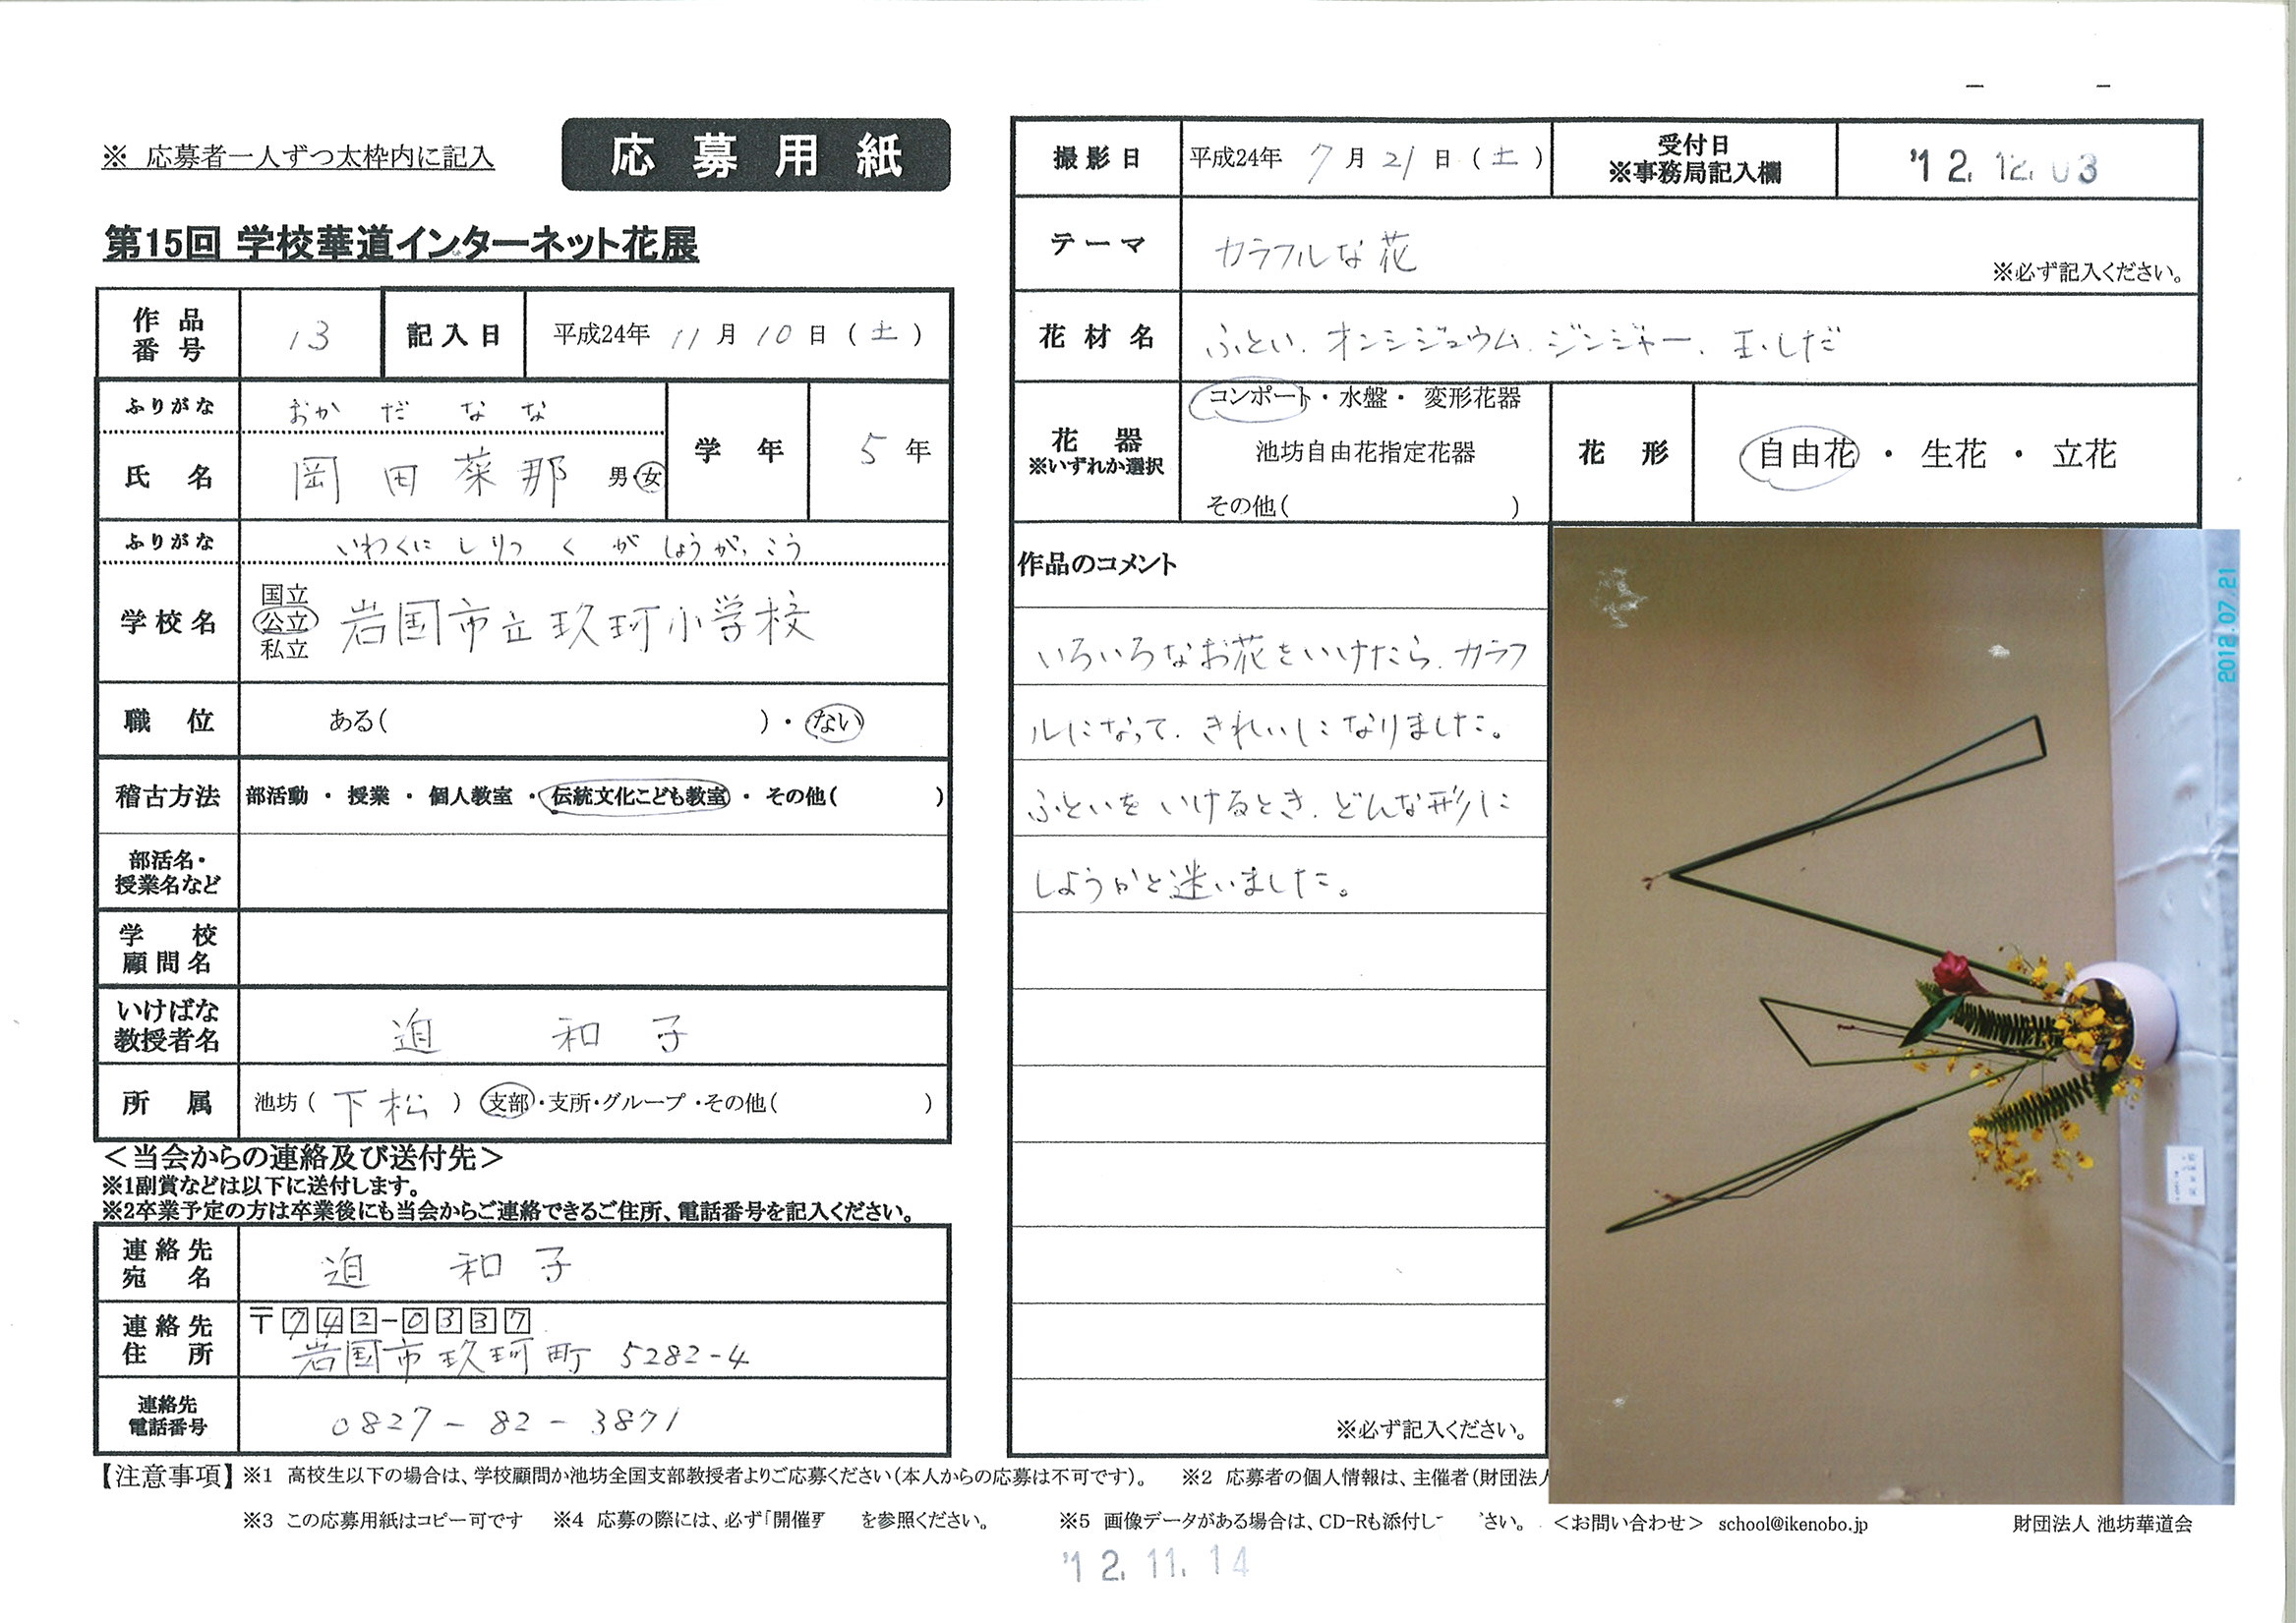 ※ 応募者一人ずつ太枠内に記入
応募用紙
第15回 学校華道インターネット花展
作品番号 13 記入日 平成24年 11月 10日 (土)
ふりがな おかだ なな
氏名 岡田菜那 男・女
学年 5年
ふりがな いわくにしりつ くが しょうがっこう
学校名 国立 公立 私立 岩国市立玖珂小学校
職位 ある( )・ない
稽古方法 部活動 ・ 授業 ・ 個人教室 ・ 伝統文化こども教室 ・ その他( )
部活名・授業名など
学校顧問名
いけばな教授者名 迫 和子
所属 池坊( 下松 ) 支部・支所・グループ・その他( )
<当会からの連絡及び送付先>
※1副賞などは以下に送付します。
※2卒業予定の方は卒業後にも当会からご連絡できるご住所、電話番号を記入ください。
連絡先宛名 迫 和子
連絡先住所 〒742-0337
岩国市玖珂町 5282-4
連絡先電話番号 0827-82-3871
撮影日 平成24年 7月 21日 (土) 受付日 ※事務局記入欄 '12.12.03
テーマ カラフルな花 ※必ず記入ください。
花材名 ふとい、オンシジュウム、ジンジャー、玉しだ
花器 ※いずれか選択 コンポート・水盤・変形花器
池坊自由花指定花器
その他( )
花形 自由花 ・ 生花 ・ 立花
作品のコメント
いろいろなお花をいけたら、カラフ
ルになって、きれいになりました。
ふといをいけるとき、どんな形に
しようかと迷いました。
※必ず記入ください。
2012.07.21
【注意事項】 ※1 高校生以下の場合は、学校顧問か池坊全国支部教授者よりご応募ください(本人からの応募は不可です)。 ※2 応募者の個人情報は、主催者(財団法
※3 この応募用紙はコピー可です ※4 応募の際には、必ず「開催 を参照ください。 ※5 画像データがある場合は、CD-Rも添付し さい。 <お問い合わせ> school@ikenobo.jp 財団法人 池坊華道会
'12.11.14